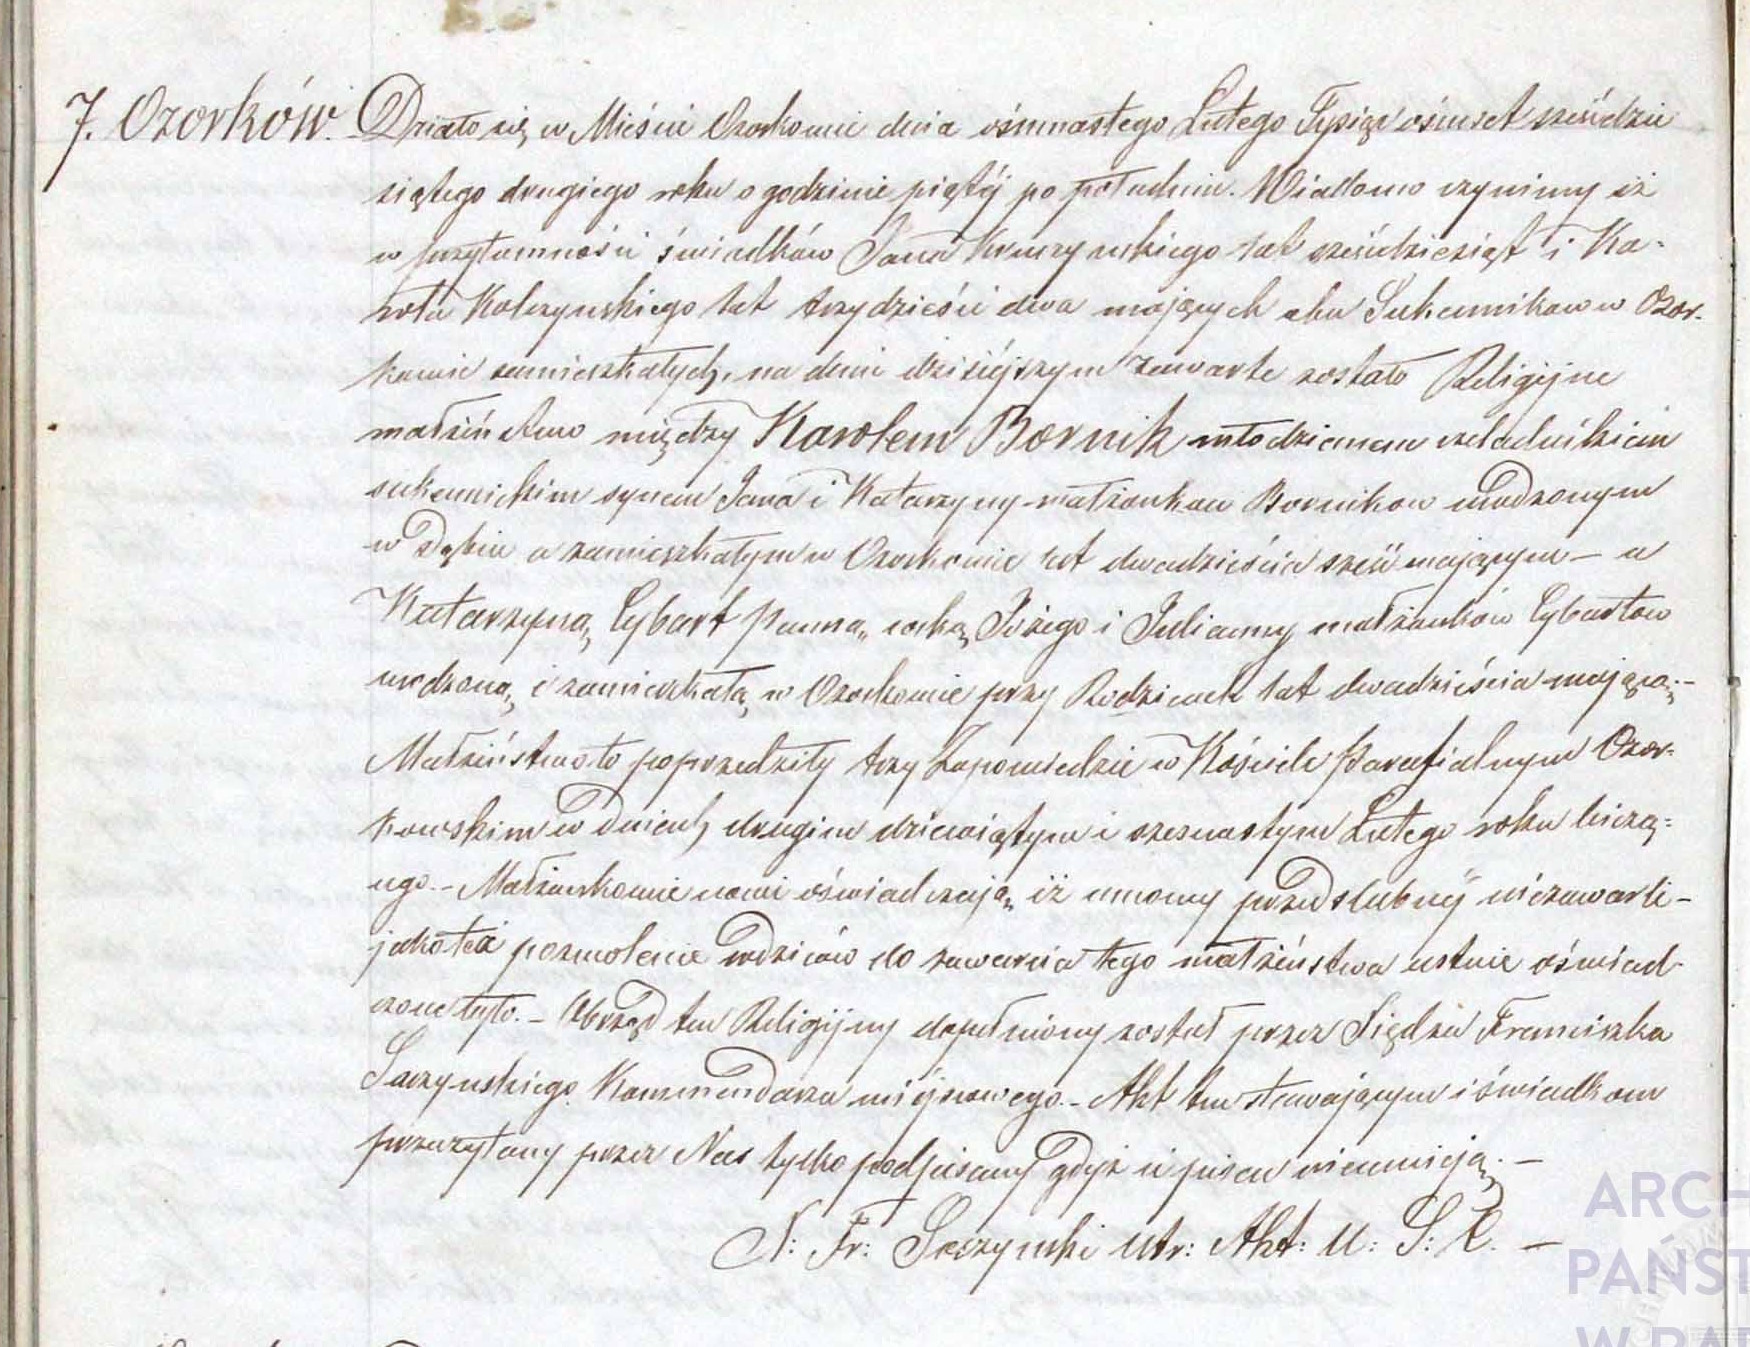 7. Ozorków. Działo się w Mieście Ozorkowie dnia ośmnastego Lutego Tysiąc ośmset sześdzie
siątego drugiego roku o godzinie piątéj po południu. Wiadomo czynimy iż
w przytomności świadków Jana Kruczynskiego lat sześdziesiąt i Ka-
rola Kolczynskiego lat trzydzieści dwa mających obu Sukennikow w Ozor-
kowie zamieszkałych, na dniu dzisiéjszym zawarte zostało Religijne
małżeństwo między Karolem Bornik młodzianem czeladnikiem
sukennickim synem Jana i Katarzyny małżonkow Bornikow urodzonym
w Dąbiu a zamieszkałym w Ozorkowie lat dwadzieścia sześć mającym – a
Katarzyną Cybart Panną, corką Idziego i Julianny małżonków Cybartow
urodzoną i zamieszkałą w Ozorkowie przy Rodzicach lat dwadzieścia mającą.–
Małżeństwo to poprzedziły trzy Zapowiedzie w Kościele Parafialnym Ozor-
kowskim w Dniach drugim dziewiątym i szesnastym Lutego roku bieżą-
cego.– Małżonkowie nowi oświadczają iż umowy przedslubnéj niezawarli –
jakoteż pozwolenie rodziców do zawarcia tego małżeństwa ustnie oświad-
czone było. – Obrząd ten Religijny dopełniony został przez Xiędza Franciszka
Saczynskiego Kommendarza miéjscowego.– Akt ten stawającym i świadkom
przeczytany przez Nas tylko podpisany gdyż ci pisac nieumieją. –
X: Fr: Saczynski Utr: Akt: U: S: C. –
ARCH
PAŃST
W